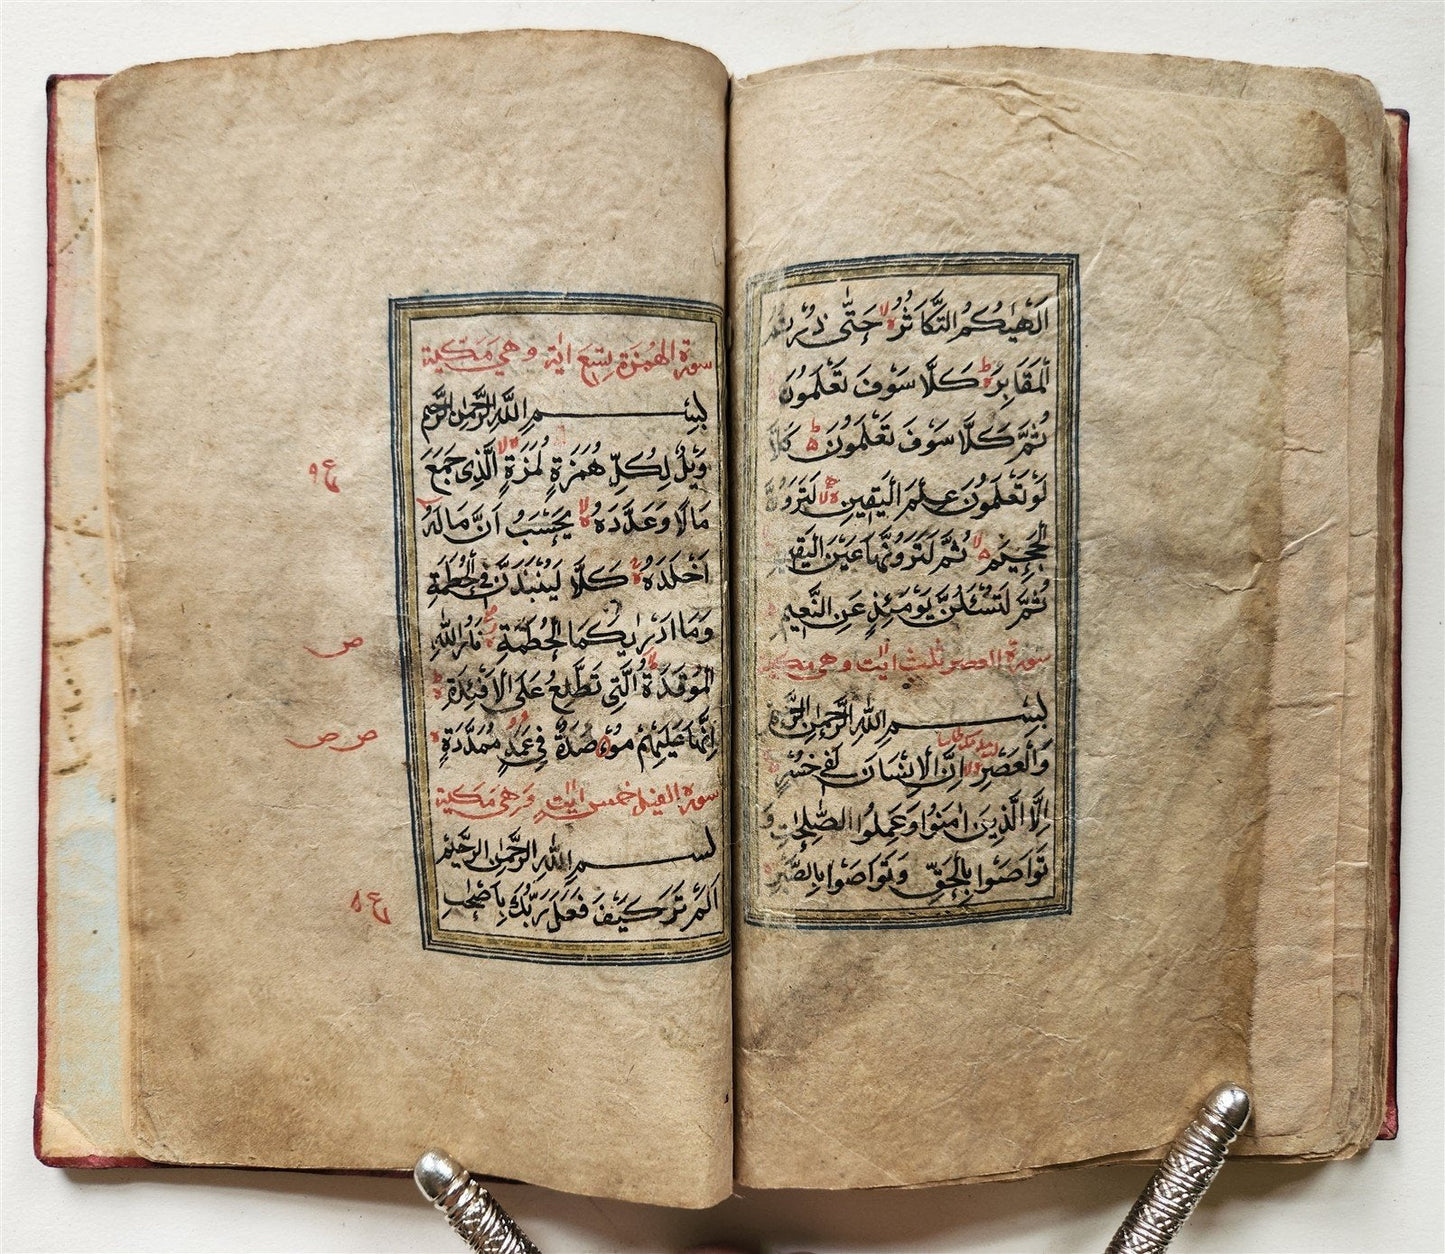 اَلْهٰيكُمُ التَّكَاثُرُ لا حَتّٰى زُرْتُمُ
الْمَقَابِرَ ط كَلَّا سَوْفَ تَعْلَمُونَ
ثُمَّ كَلَّا سَوْفَ تَعْلَمُونَ ط كَلَّا
لَوْ تَعْلَمُونَ عِلْمَ الْيَقِينِ لا لَتَرَوُنَّ
الْجَحِيمَ لا ثُمَّ لَتَرَوُنَّهَا عَيْنَ الْيَقِينِ
ثُمَّ لَتُسْـَٔلُنَّ يَوْمَئِذٍ عَنِ النَّعِيمِ
سورة العصر ثلث ايٰت وهي مكية
بِسْمِ اللّٰهِ الرَّحْمٰنِ الرَّحِيمِ
وَالْعَصْرِ لا اِنَّ الْاِنْسَانَ لَفِي خُسْرٍ
اِلَّا الَّذِينَ اٰمَنُوا وَعَمِلُوا الصّٰلِحٰتِ وَ
تَوَاصَوْا بِالْحَقِّ وَتَوَاصَوْا بِالصَّبْرِ
سورة الهمزة تسع اية وهي مكية
بِسْمِ اللّٰهِ الرَّحْمٰنِ الرَّحِيمِ
وَيْلٌ لِكُلِّ هُمَزَةٍ لُمَزَةٍ لا الَّذِى جَمَعَ
مَالًا وَعَدَّدَهُ لا يَحْسَبُ اَنَّ مَالَهُ
اَخْلَدَهُ كَلَّا لَيُنْبَذَنَّ فِى الْحُطَمَةِ
وَمَا اَدْرٰيكَ مَا الْحُطَمَةُ نَارُ اللّٰهِ
الْمُوقَدَةُ لا الَّتِى تَطَّلِعُ عَلَى الْاَفْئِدَةِ ط
اِنَّهَا عَلَيْهِمْ مُوْصَدَةٌ فِى عَمَدٍ مُمَدَّدَةٍ
سورة الفيل خمس ايٰت وهي مكية
بِسْمِ اللّٰهِ الرَّحْمٰنِ الرَّحِيمِ
اَلَمْ تَرَ كَيْفَ فَعَلَ رَبُّكَ بِاَصْحٰبِ
ع ٩
ص
ص ص
ع ٨